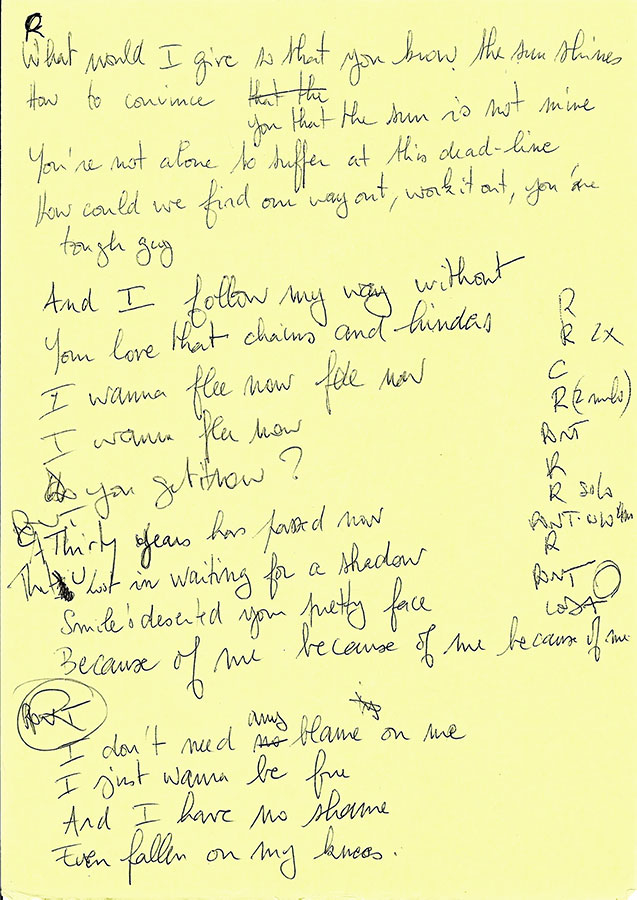 R
What would I give so that you know the sun shines
How to convince that the
you that the sun is not mine
You're not alone to suffer at this dead-line
How could we find our way out, work it out, you're
tough guy
And I follow my way without
Your love that chains and hinders
I wanna flee now flee now
I wanna flee now
you get it now?
PONT
Thirty years has passed now
That U lost in waiting for a shadow
Smile's deserted your pretty face
Because of me because of me because of me
PONT
any
I don't need no blame on me
I just wanna be free
And I have no shame
Even fallen on my knees.
R
R 2x
C
R (2
PONT
R
R solo
PONT
R
PONT
CODA